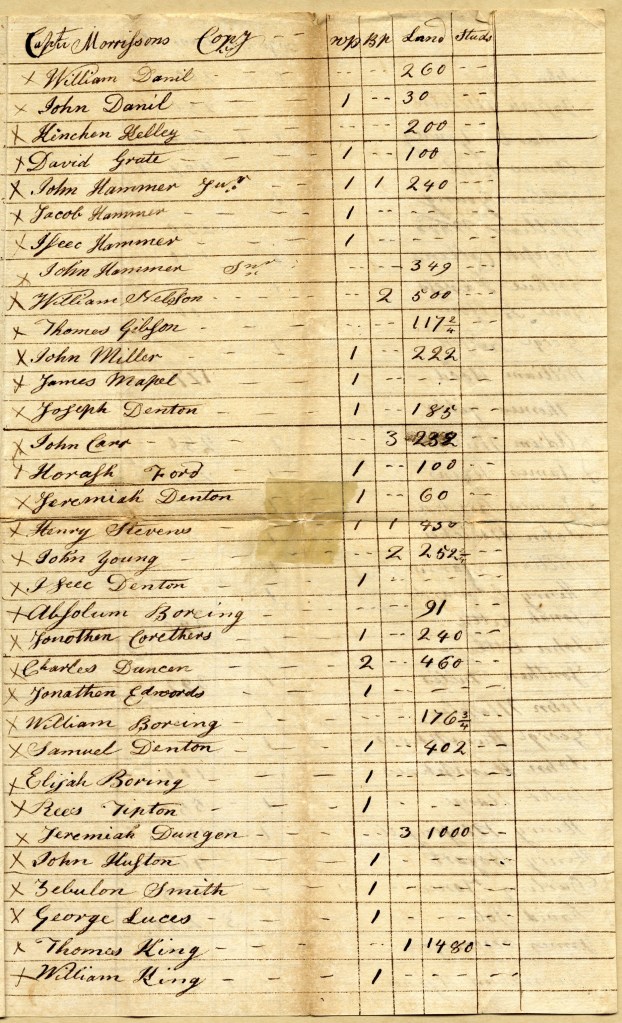 Captn Morrissons Copy - - wp Bp Land Studs
x William Danil - - - - - - 260 - -
x John Danil - - - 1 - - 30 - -
x Kinchen Kelley - - - - - 200 - -
x David Grate - - - 1 - - 100 - -
x John Hammer Junr - - 1 1 240 - -
x Jacob Hammer - - - 1 - - - -
x Iseec Hammer - - - 1 - - - -
x John Hammer Snr - - - - 349 - -
x William Nelson - - - - - 2 500 - -
x Thomas Gibson - - - - - 117 2/4
x John Miller - - - 1 - - 222 - -
x James Mapel - - - 1 - - - -
x Joseph Denton - - - 1 - - 185 - -
x John Carr - - - - - 3 232 - -
x Horassh Ford - - 1 - - 100 - -
x Jeremiah Denton - - 1 - - 60 - -
x Henry Stevens - - 1 1 450 - -
x John Young - - - - - 2 252 - -
x Iseec Denton - - - 1 - - - -
x Absolum Boreing - - - - - 91 - -
x Jonothen Corethers - - 1 - - 240 - -
x Charles Duncen - - - 2 - - 460 - -
x Jonathen Edwords - - 1 - - - -
x William Boreing - - - - - 176 3/4
x Samuel Denton - - - 1 - - 402 - -
x Elijah Boring - - - 1 - - - -
x Rees Tipton - - - 1 - - - -
x Jeremiah Dungen - - - - 3 1000 - -
x John Huston - - - 1 - - - -
x Zebulon Smith - - - 1 - - - -
x George Luces - - - 1 - - - -
x Thomas King - - - - - 1 1480 - -
x William King - - - 1 - - - -